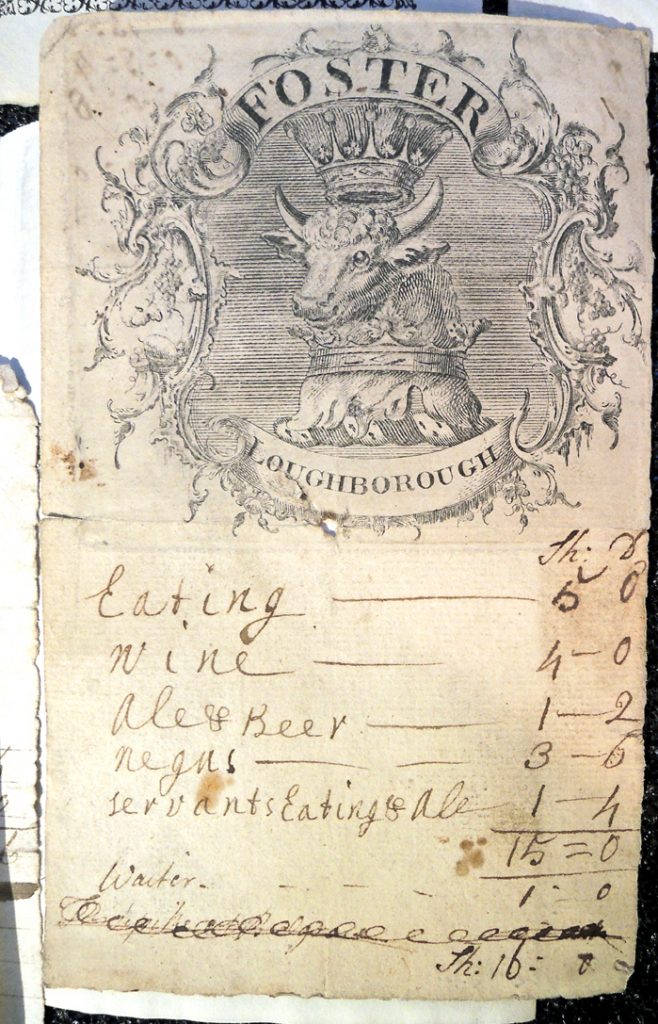 FOSTER
LOUGHBOROUGH
Sh: D
Eating 5 0
Wine 4-0
Ale & Beer 1-2
Negus 3-6
Servants Eating & Ale 1-4
15=0
Waiter - - - - 1-0
Sh: 16= 0